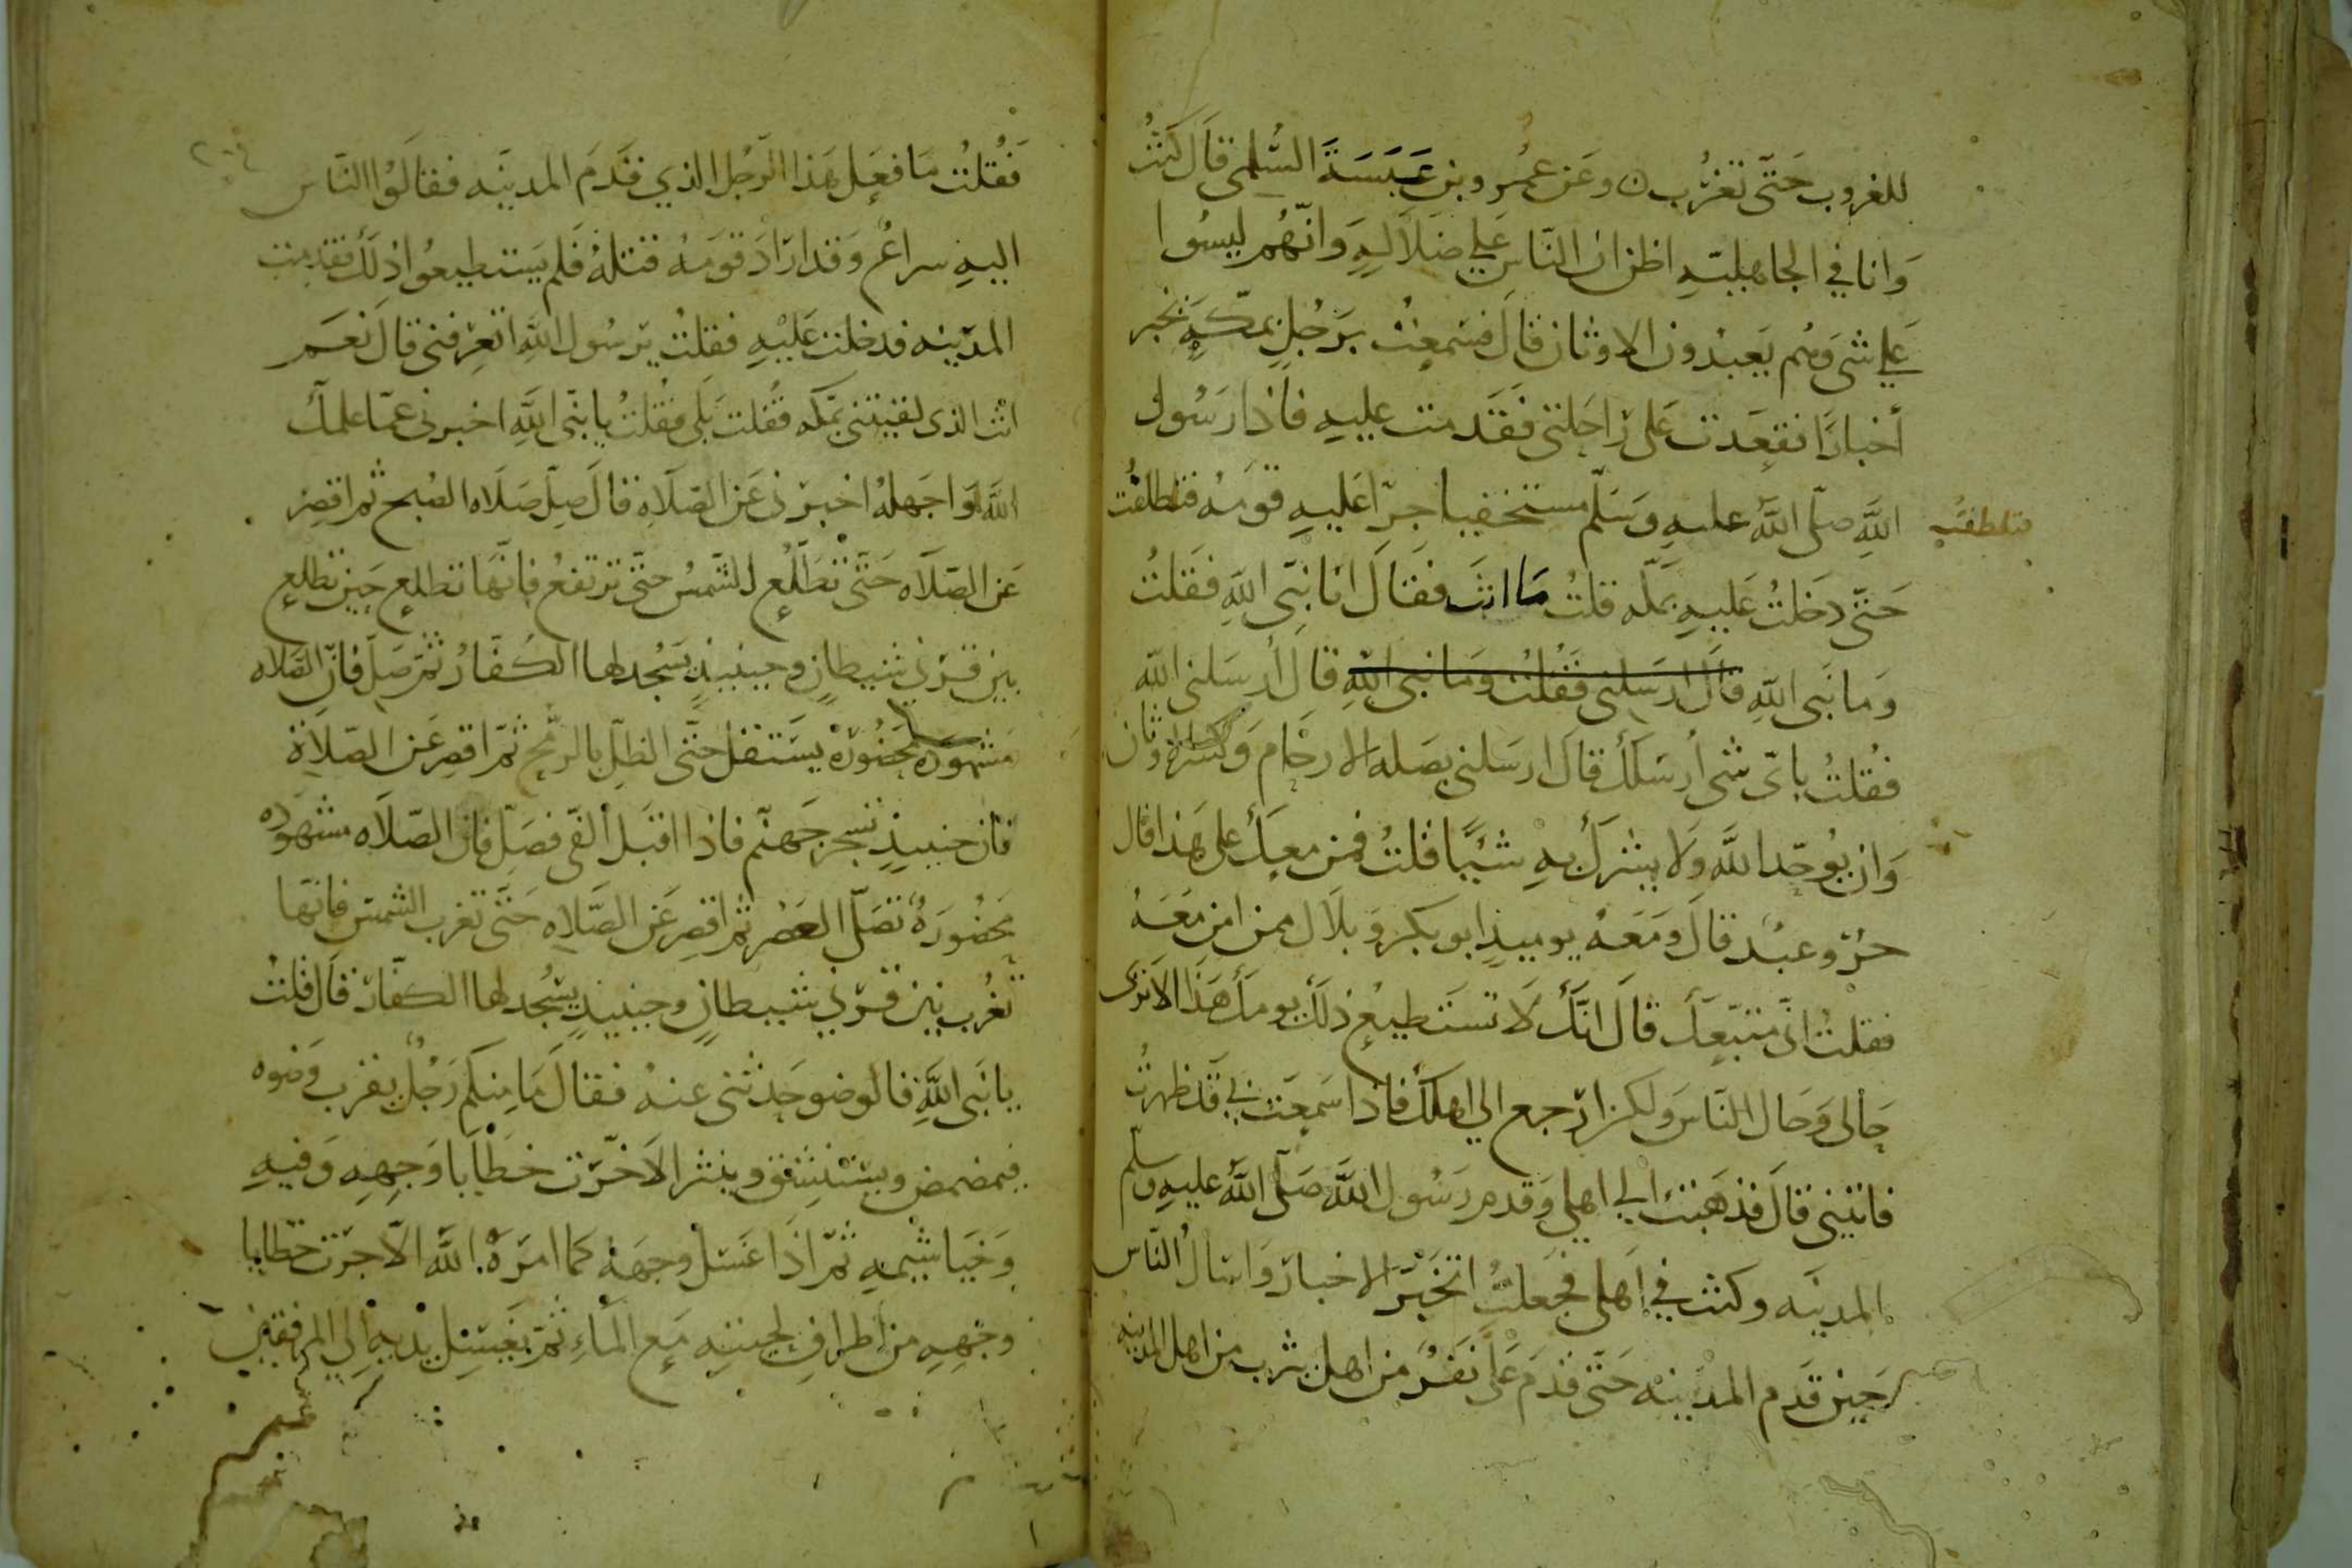 للغروب حَتّى تغرُب ن وعَن عمُرو بن عَبَسَةَ السُّلمى قالَ كنتُ
وَانا في الجاهليّةِ اظن ان النّاس عَلي ضلاَلةٍ وَانّهُم ليسُوا
عَلي شى وَهُم يَعبدُون الاوثان قالَ فسَمعتُ برَجُلٍ بمَكّهِ يخبر
أخبارًا فقعَدت عَلى رَاحِلتى فقَدمت عليهِ فاذا رَسُول
اللَّهِ صلّى اللَّهُ عليهِ وَسَلّم مستخفيا جِرّاً عَليهِ قومَهُ فتلطفتُ
فتلطفت
حَتّى دَخلتُ عَليهِ بمكّه قلتُ مَا انتَ فقَالَ انَا نبّى اللَّهِ فقلتُ
وَما نَبى اللَّهِ قالَ ارسَلنى فَقُلتُ وَمَا نبى اللَّهِ قالَ أرسَلنى اللَّه
فقُلتُ باىّ شى أرسَلكَ قالَ ارسَلنى بصَله الارحَام وَكسْر الاوثان
وَان يُوحّد اللَّهُ وَلا يشرَك بهِ شيئًا قُلتُ فمن معكَ على هَذا قال
حُرّ وعبْد قالَ ومَعَهُ يوميذٍ ابو بكر وَبلاَل ممن امن مَعَهُ
فقلتُ انّى متبّعكَ قالَ انّكَ لَا تستَطيعُ ذلكَ يومكَ هَذَا الاَ ترَى
حَالى وَحَال النّاس وَلكن ارجع الي اهلكَ فاذا سَمعتَ بي قَد ظهرتُ
فاتنى قالَ فذهَبتُ الي اهلي وَقدم رَسُول اللَّهِ صَلّى اللَّهُ عليهِ وسلم
المدينَه وكنتُ في اَهلى فجَعلتُ اتخبّرَ الاخبار وَاسالُ النّاس
حين قَدم المدينه حَتّى قدَم عَلىّ نفَرُ من اهل يثرب من اهل المدينه
فَقُلتُ مَا فعَل هَذا الرّجُل الذي قَدَمَ المدينَه فقالُوا النّاس
اليهِ سراعُ وَقد ارَادَ قومَهُ قتلَهُ فَلم يَستطيعُوا ذلكَ فقدمت
المدَينه فدخلت عَليْهِ فقلتُ يرَسُول اللَّهِ اتعرفنى قالَ نعَم
انت الذى لقيتنى بمكه فقُلت بَلى فقُلتُ يا نبّى اللَّهِ اخبرنى عمّا علمكَ
اللَّهُ وَاجهلهُ اخبرَنى عَن الصّلَاةِ قالَ صلّ صَلَاه الصُبح ثم اقصر
عَن الصّلَاه حَتّى تطلع الشّمسُ حتّى ترتفعُ فانّهَا تطلع حين تطلع
بين قرني شيطانٍ وحينيذٍ يَسْجُد لها الكفَارُ ثمّ صَلّ فانّ الصَلاه
مشهودَه محضُورَهُ يسَتقل حتّى الظلّ بالرمْح ثمّ اقصر عَن الصّلَاة
فان حينيذٍ تسجر جَهنّم فاذا اقبَل الفَى فصَلّ فان الصّلَاه مشهودَه
محضُورَهُ تصَلّى العَصْر ثم اقصر عَن الصّلَاه حَتّى تغرب الشمس فانّها
تغُرب بين قرني شيطانٍ وحينيذٍ يسْجُد لها الكفّار قالَ قلتُ
يا نَبى اللَّهِ فالوضو حَدثنى عنهُ فقالَ مَا منِكم رَجُل يقرب وَضوه
فيمضمض وَيستنشق وينثر الاَ خرّت خطَايَا وَجههِ وَفيهِ
وَخيَاشيمهِ ثمّ اذَا غَسَل وجههُ كما امَرَهُ اللَّه الاّ جرّت خطايا
وجههِ من اطراف لحيتهِ مَع الماءِ ثمّ يغَسِل يدَيهِ الي المرفقين